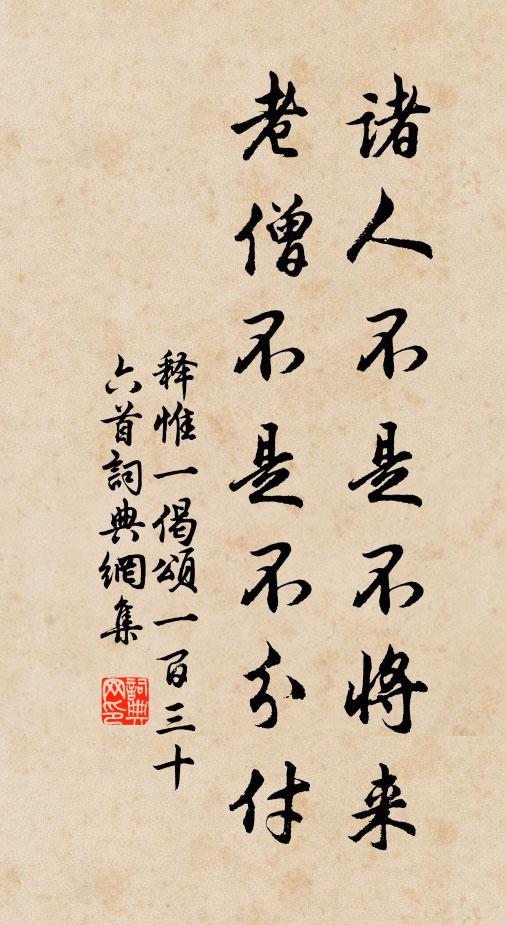 諸人不是不將来
老僧不是不分付
释惟一偈頌一百三十
六首詞典網集
詞典
网印